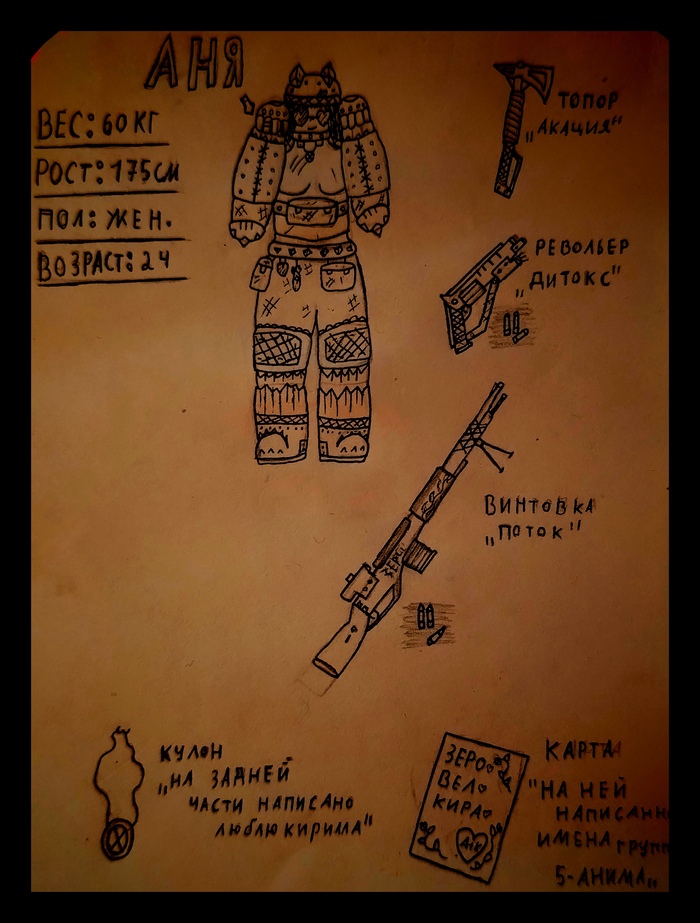 АНЯ
ВЕС: 60 КГ
РОСТ: 175 СМ
ПОЛ: ЖЕН.
ВОЗРАСТ: 24
ТОПОР
„АКАЦИЯ“
РЕВОЛЬВЕР
„ДИТОКС"
ВИНТОВКА
„ПОТОК"
КУЛОН
„НА ЗАДНЕЙ
ЧАСТИ НАПИСАНО
ЛЮБЛЮ КИРИЛЛА"
ЗЕРО
ВЕЛ
КИРА
А+К
КАРТА
"НА НЕЙ
НАПИСАНН
ИМЕНА групп
5-АНИМА„